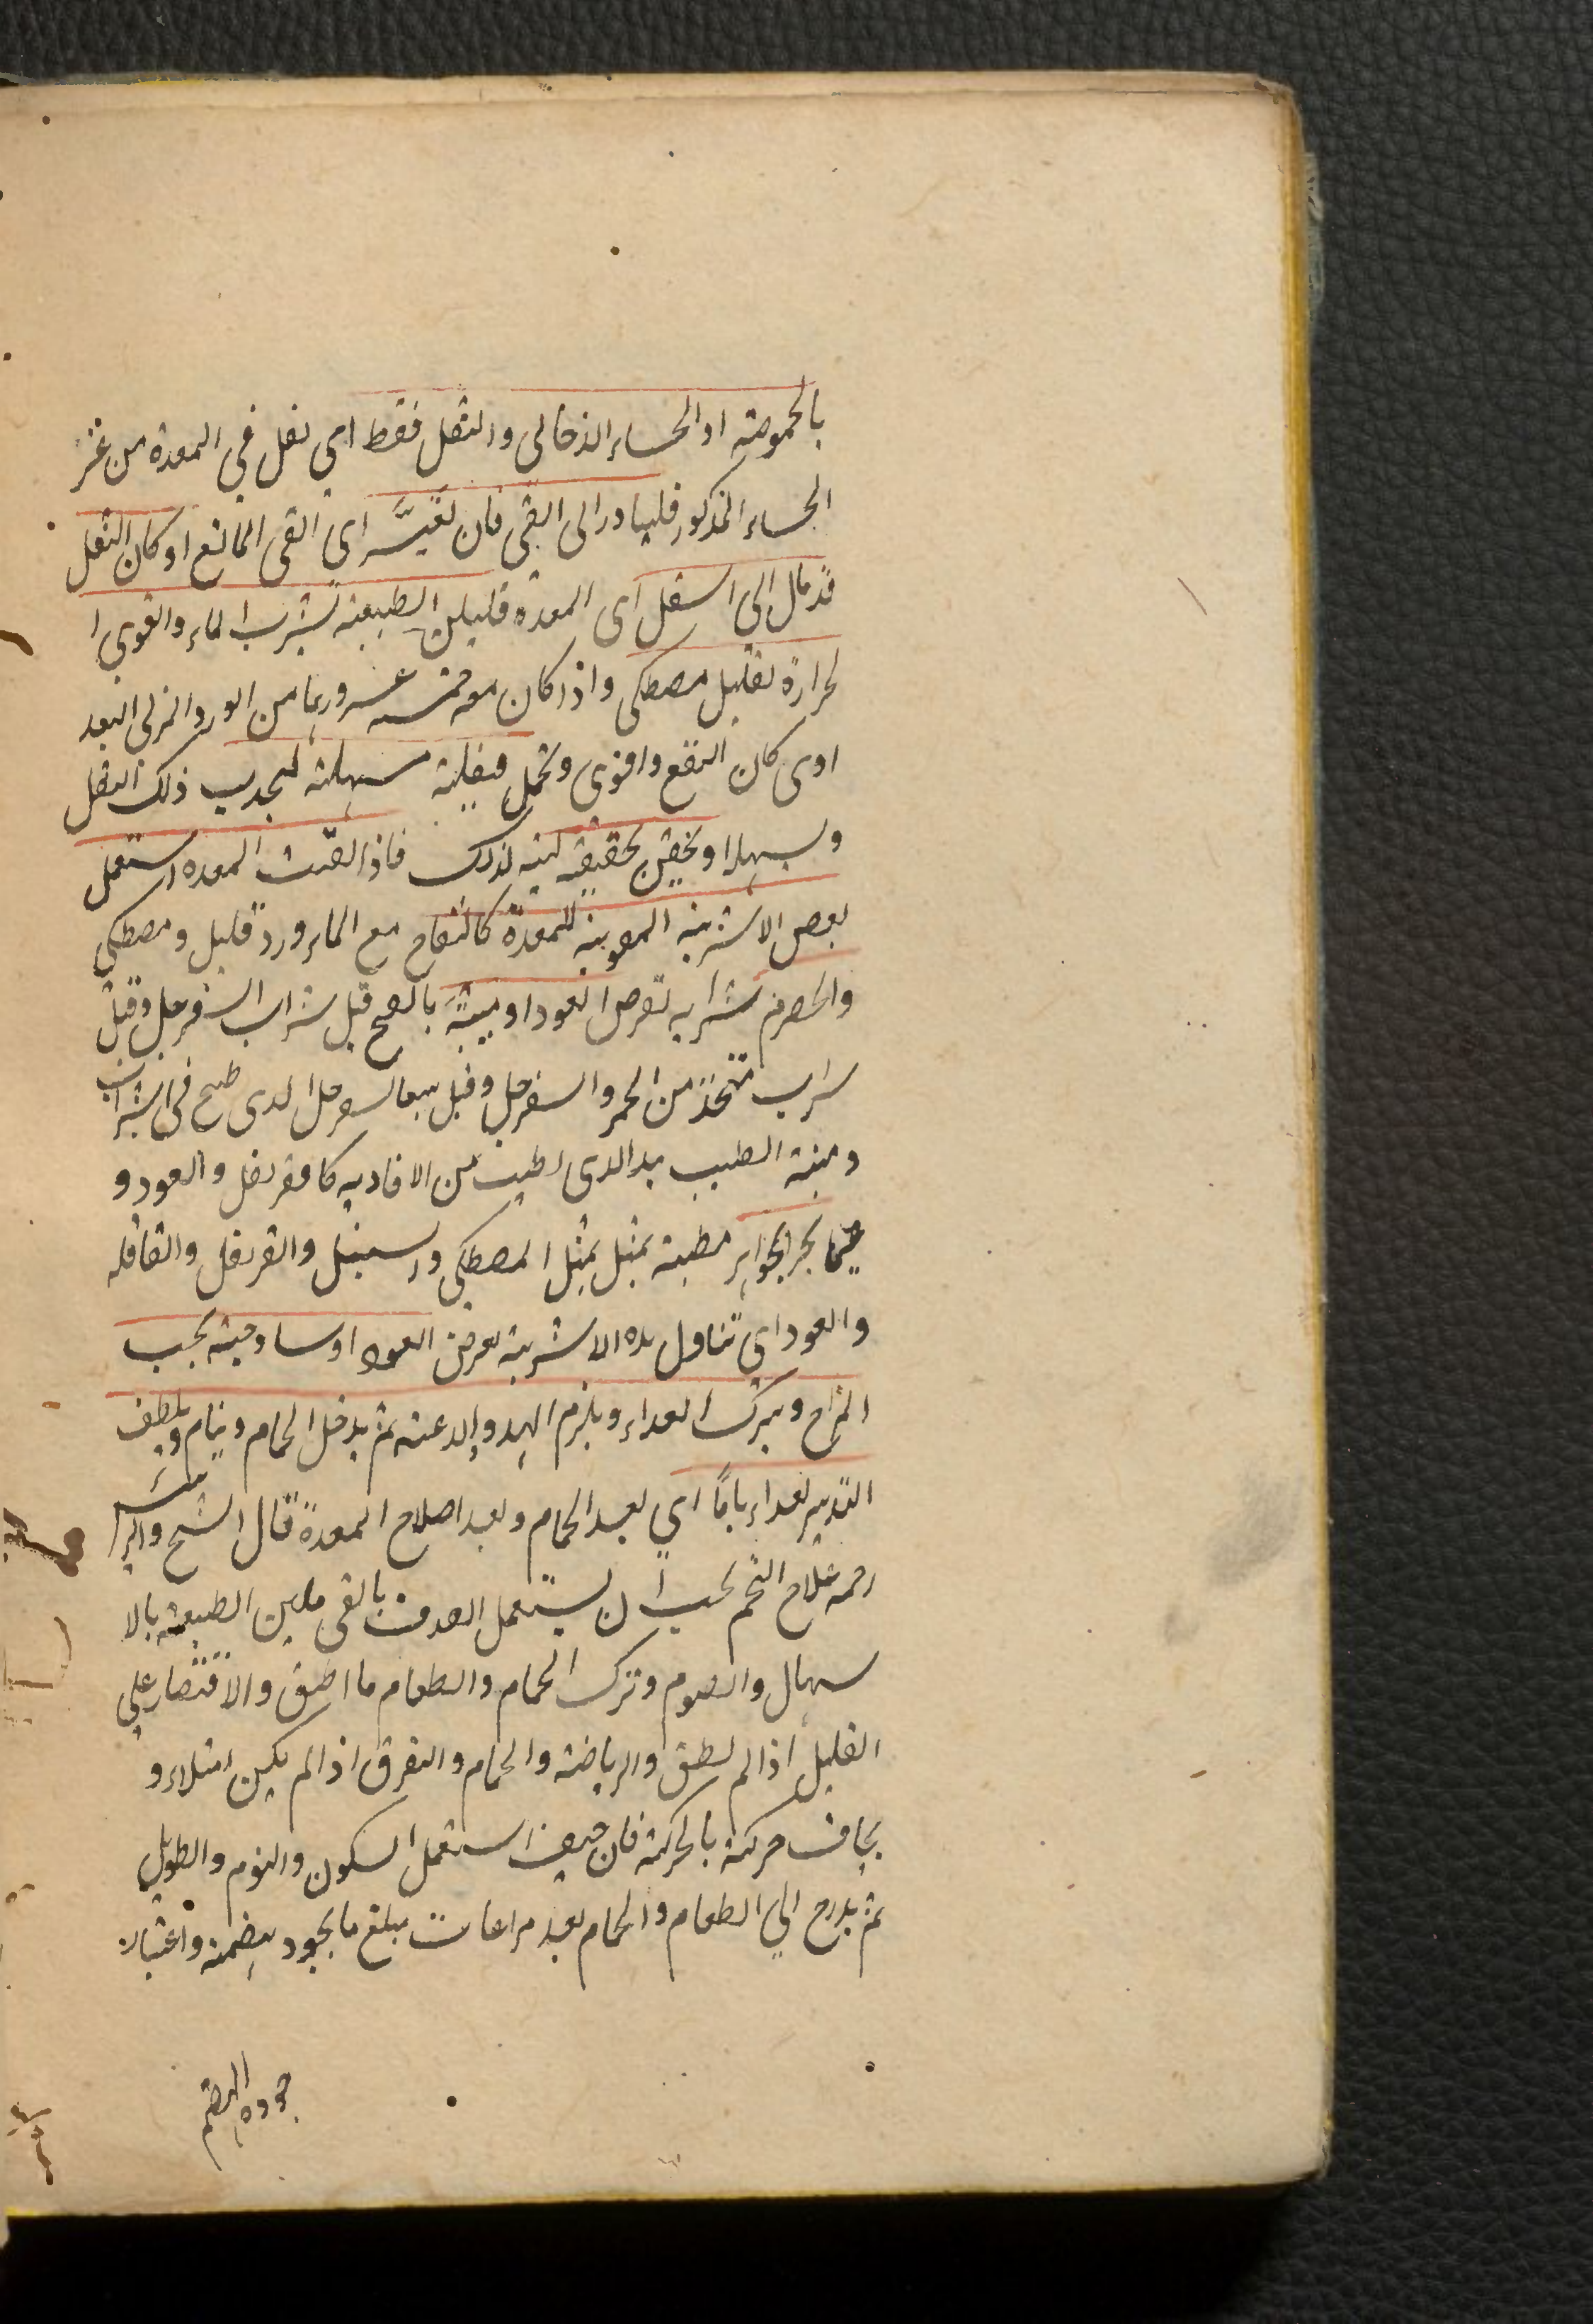 بالحموضة او الجساء الدخانى والثقل فقط اى ثقل فى المعدة من غير
الجساء المذكور فليبادر الى القى فان تعيّسر اى القى المانع او كان الثقل
قد مال الى اسفل اى المعدة فليلين الطبيعة بشرب الماء والقوى ا
لحرارة بقليل مصطكى واذا كان معه خمسه عشر وربما من الورد المربى
اوى كان انفع واقوى وتحمل فتيلة مسهلة ليجذب ذلك الثقل
وبسهلا او يحقن بحقنة لينة لذلك فاذا نقيت المعدة استعمل
بعض الاشربة المقوية للمعدة كالتفاح مع الماء ورد قليل ومصطكى
والحصرم شرابه بقرص العود او ميبَّة بالفتح قيل شراب السفرجل وقيل
شراب متخذ من الخمر والسفرجل وقيل السفرجل الذى طبخ فى الشراب
وميبة الطيب الذى يطيب من الافاويه كالقرنفل والعود و
مطيبة بمثل بمثل المصطكى والسنبل والقرنفل والقاقله
والعود اى تناول هذه الاشربة بقرض العود او ساذجة بحسب
المزاج ويترك الغداء ويلزم الهدو والدعة ثم يدخل الحمام وينام ويلطف
التدبير بعد ايامًا اى بعد الحمام وبعد اصلاح المعدة قال الشيخ
رحمه علاج التخم يجب ان يستعمل القذف بالقى وتليين الطبيعة بالا
سهال والصوم وترك الحمام والطعام ما اطيق والاقتصار على
القليل اذا لم يطق والرياضة والحمام والتعرق اذا لم يكن امتلاء و
يخاف حركته بالحركة فان خيف استعمل السكون والنوم والطويل
ثم يدرج الى الطعام والحمام بعد مراعات مبلغ ما يجود بهضمه واعتبار
جودة الهضم